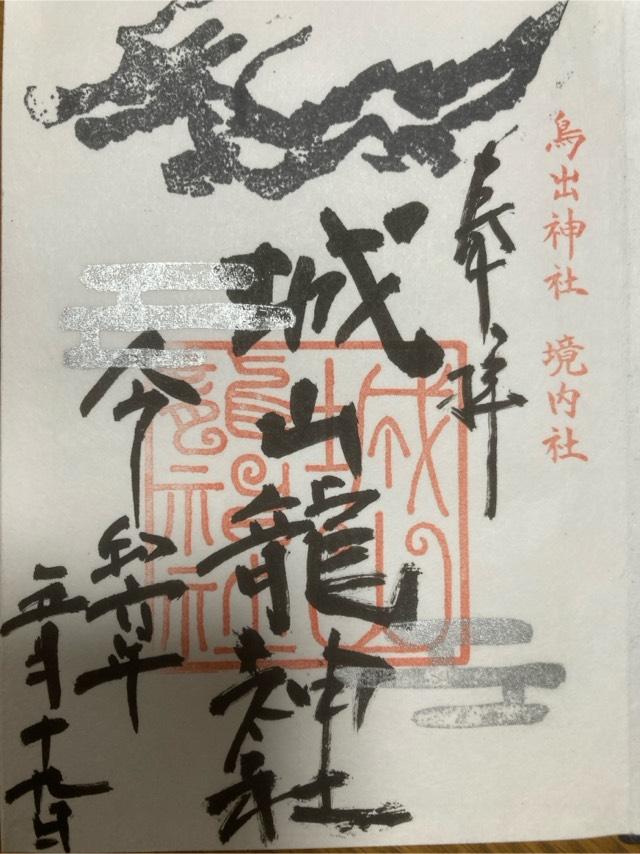 鳥出神社 境内社
奉拝
城山龍神社
令和六年
五月十九日